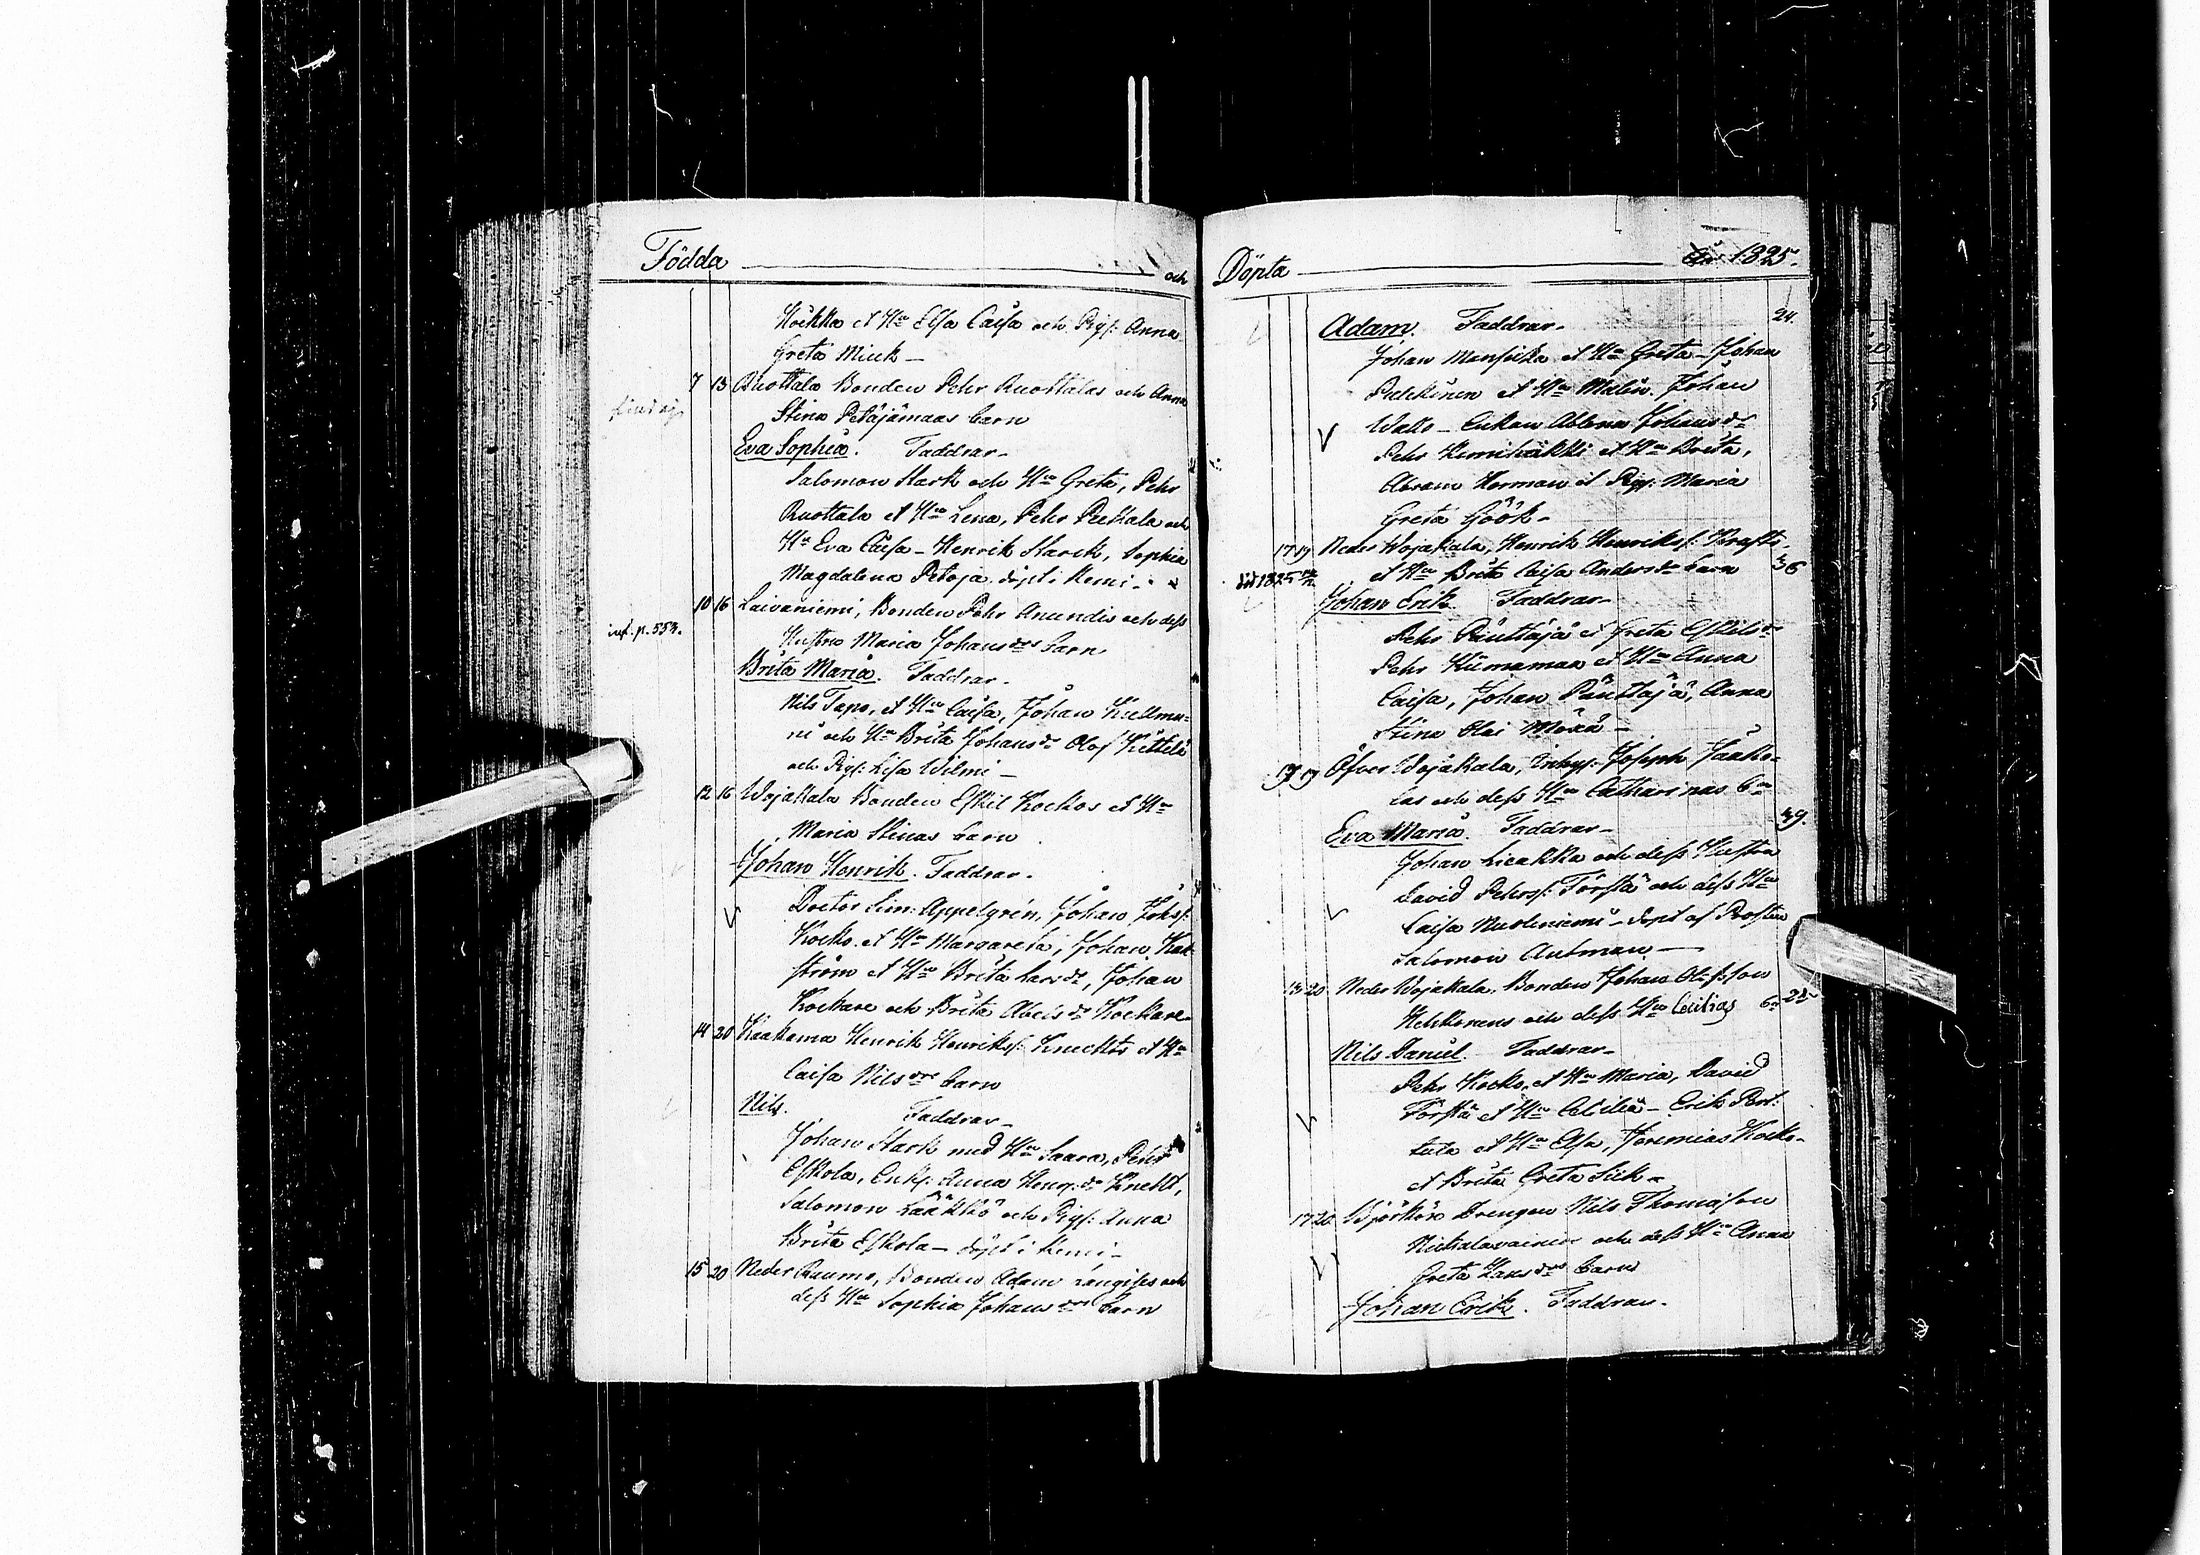 Födda och
Höckka et H:u Elsa Caisa och Pig: Anna
Greta Miuk –
7 13 Ruottala Bonden Pehr Ruottalas och Anna
Stina Petäjämaas barn
Eva Sophia. Faddrar –
Salomon Stark och H:u Greta, Pehr
Ruottala et H:u Lena, Pehr och
H:u Eva Caisa – Henrik Starck, Sophia
Magdalena Petoja. döpt i Kemi –
10 16 Laivaniemi, Bonden Pehr Anundis och dess
inf. p. 553. Hustru Maria Johansdrs barn
Brita Maria. Faddrar –
Nils Tapo, et H:u Caisa, Johan
ni och H:u Brita Johansdr Olof Kettelä
och Pig: Lisa Wilmi –
12 16 Wojakala Bonden Eskil Kockos et H:u
Maria Stinas barn
Johan Henrik. Faddrar –
Doctor Sim: Appelgrén, Johan Johs:
Kocko. et H:u Margareta, Johan
ström et H:u Brita Larsdr, Johan
Kockare och Brita Abelsdr Kockare –
14 20 Kaakama Henrik Henrikss: Knecktes et H:u
Caisa Nilsdrs barn
Nils. Faddrar –
Johan Stark med H:u Saara, Pehr
Eskola, Enk: Anna Henr:dr Kneckt,
Salomon Lääkkö och Pig: Anna
Brita Eskola – döpt i Kemi –
15 20 Neder Raumo, Bonden Adam Längises och
dess H:u Sophia Johansdrs barn
Döpta År 1825.
Adam. Faddrar – 24.
Johan Mansikka et H:u Greta – Johan
Pukkinen et H:u Malin. Johan
Wallo – Enkan Johansdr
Pehr et H:u Brita,
Abram Herman et Pig: Maria
Greta Göök –
17 19 Neder Wojakala, Henrik Henrikss: Krafts
död 1825 et H:u Brita Caisa Andersdr barn 36
Johan Erik. Faddrar –
Pehr Pauttaja et Greta Eskilsdr
Pehr et H:u Anna
Caisa, Johan Pauttaja, Anna
Stina Olai
17 19 Öfver Wojakala, Inhys: Joseph Jaako-
las och dess H:u Catharinas b:n
Eva Maria. Faddrar – 39.
Johan Lieakka och dess Hustru
David Pehrss: Törfta och dess H:u
Caisa Nuoliniemi – döpt af Prosten
Salomon Antman –
13 20 Neder Wojakala. Bonden Johan Olofsson
Hekkonens och dess H:u Cecilias b:n 25
Nils Daniel. Faddrar –
Pehr Kocko, et H:u Maria, David
Törfta et H:u Cecilia – Erik Port:
tula et H:u Elsa, Jeremias Kocko –
et Brita Greta Siik –
17 20 Björkön Drengen Nils Thomasson
och dess H:u Anna
Greta Hansdrs barn
Johan Erik. Faddrar –